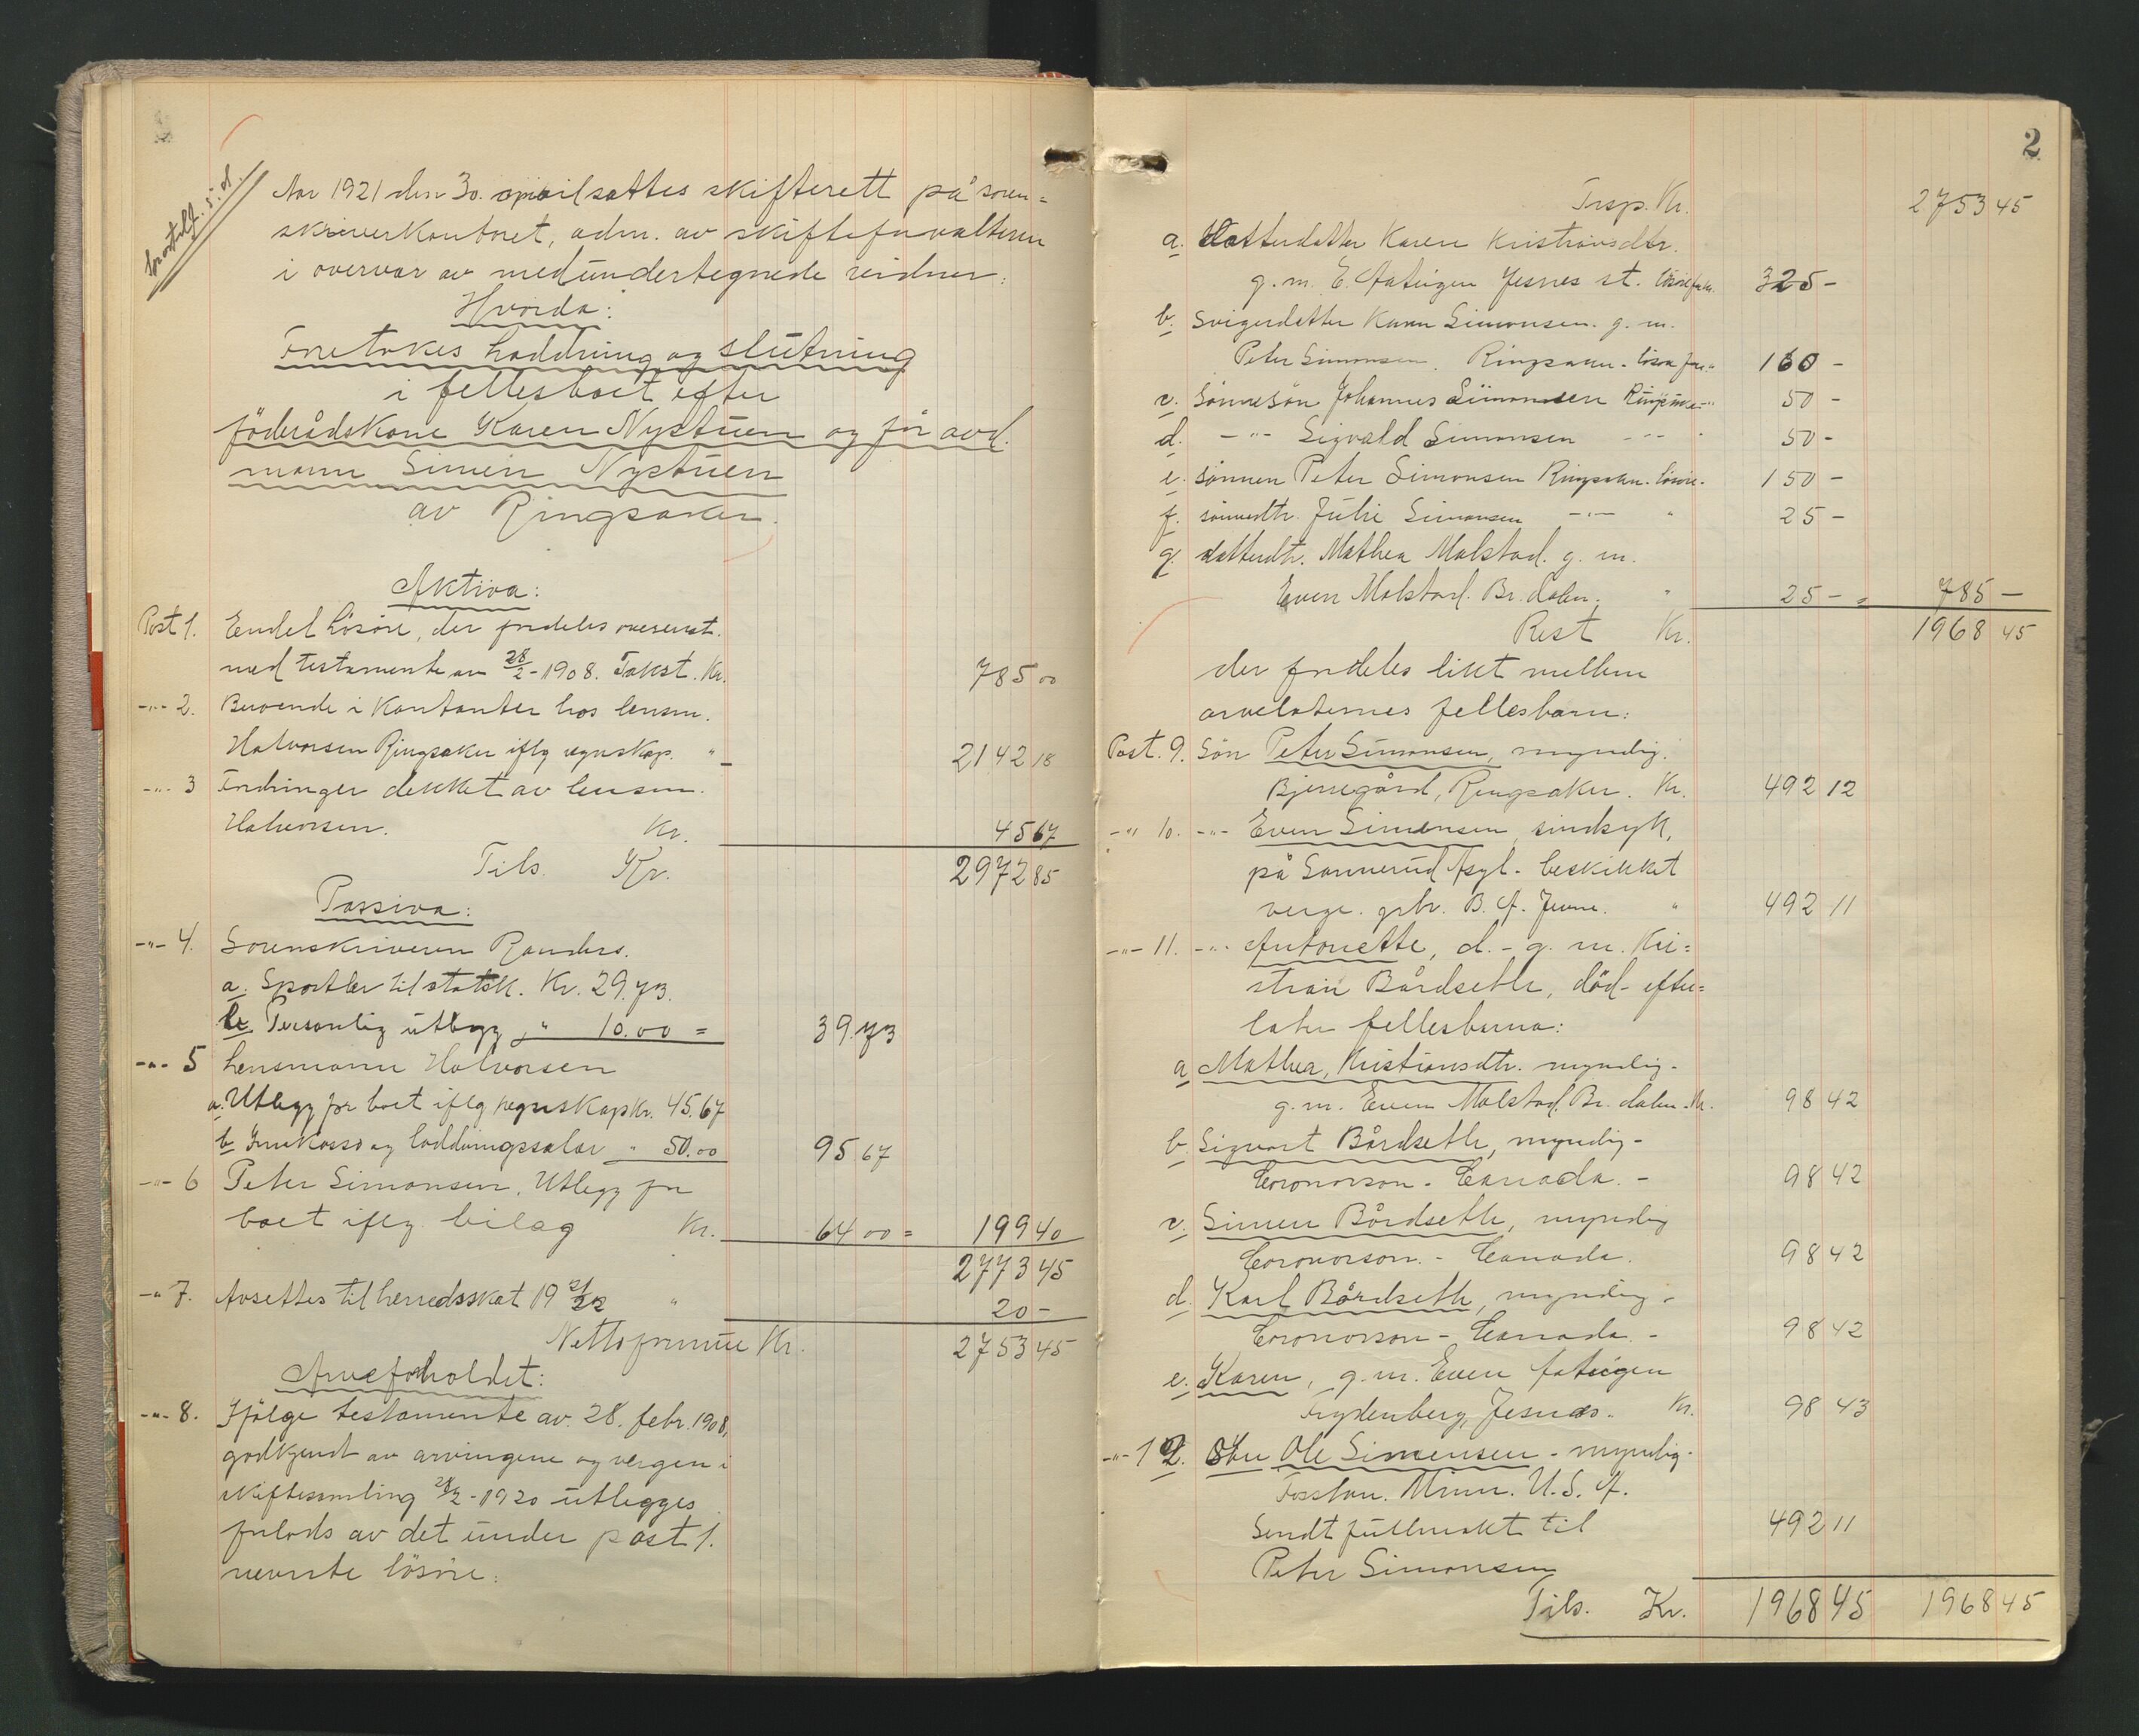 Aar 1921 den 30. april sattes skifterett på soren=
skriverkontoret, adm. av skifteforvalteren
i overvær av medundertegnede vidner:
Hvorda:
Foretokes loddning og slutning
i fellesboet efter
föderådskone Karen Nystuen og før avd.
mann Simen Nystuen
av Ringsaker.
Aktiva:
Post 1. Endel lösöre, der fordeles overenst.
med testamente av 28/2-1908. Takst. Kr. 785 00
-"- 2. Beroende i kontanter hos lensm.
Halvorsen Ringsaker iflg regnskap. " 2142 18
-"- 3 Fordringer dekket av lensm.
Halvorsen. Kr. 45 67
Tils. Kr. 2972 85
Passiva:
-"- 4. Sorenskriveren Randers.
a. Sportler til statsk. Kr. 29.73.
b. Personlig utlegg " 10.00 = 39.73
-"- 5 Lensmann Halvorsen
a. Utlegg for boet iflg regnskap Kr. 45.67
b Innkasso og loddningssalær " 50.00 95 67
-"- 6 Peter Simonsen. Utlegg for
boet iflg. bilag Kr. 64 00 = 199 40
2773 45
-"- 7. Avsettes til herredsskat 19 21/22 " 20 -
Nettoformue Kr. 2753 45
Arveforholdet:
-"- 8. Ifölge testamente av 28. febr. 1908,
godkjendt av arvingene og vergen i
skiftesamling -1920 utlegges
forlods av det under post 1.
nevnte lösöre:
2
Trsp. Kr. 2753 45
a. Datterdatter Karen Kristiansdtr.
g. m. E. Jesnes st. 325 -
b. Svigerdatter Karen Simonsen. g. m.
Peter Simonsen. Ringsaker - lösöre for " 160 -
c. Sönnesön Johannes Simonsen 50 -
d. -"- Sigvald Simonsen -"- 50 -
e. sönnen Peter Simonsen Ringsaker. lösöre. 150 -
f. sönnedtr. Julie Simonsen -"- " 25 -
g. datterdtr. Mathea Molstad. g. m.
Even Molstad. Br. dalen. " 25 - = 785 -
Rest Kr. 1968 45
der fordeles likt mellem
arvelaternes fellesbarn:
Post. 9. Sön Peter Simonsen, myndig.
Bjerregård, Ringsaker. Kr. 492 12
-"- 10. -"- Even Simensen, sindsyk,
på Sannerud Asyl. beskikket
verge. gbr. B. A. " 492 11
-"- 11. -"- Antonette, d. - g. m. Kri=
stian Bårdseth, död - efter=
later fellesbarna:
a Mathea, Kristiansdtr. myndig -
g. m. Even Molstad. Br. dalen. Kr. 98 42
b. Sigvart Bårdseth, myndig -
Coronorson - Canada. - 98 42
c. Simen Bårdseth, myndig
Coronorson - Canada. 98 42
d. Karl Bårdseth, myndig -
Coronorson - Canada. - 98 42
e. Karen, g. m. Even
Frydenberg, Jesnes. Kr. 98 43
-"- 12. Sön Ole Simensen - myndig -
Fosston. Minn. U. S. A.
Sendt fullmakt til 492 11
Peter Simonsen
Tils. Kr. 1968 45 1968 45